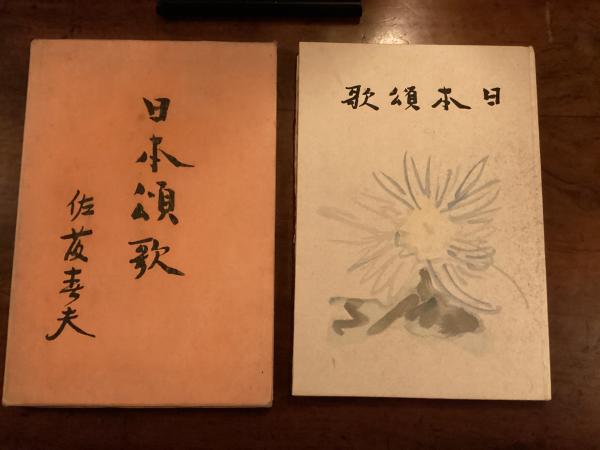 日本頌歌
佐藤春夫
日本頌歌